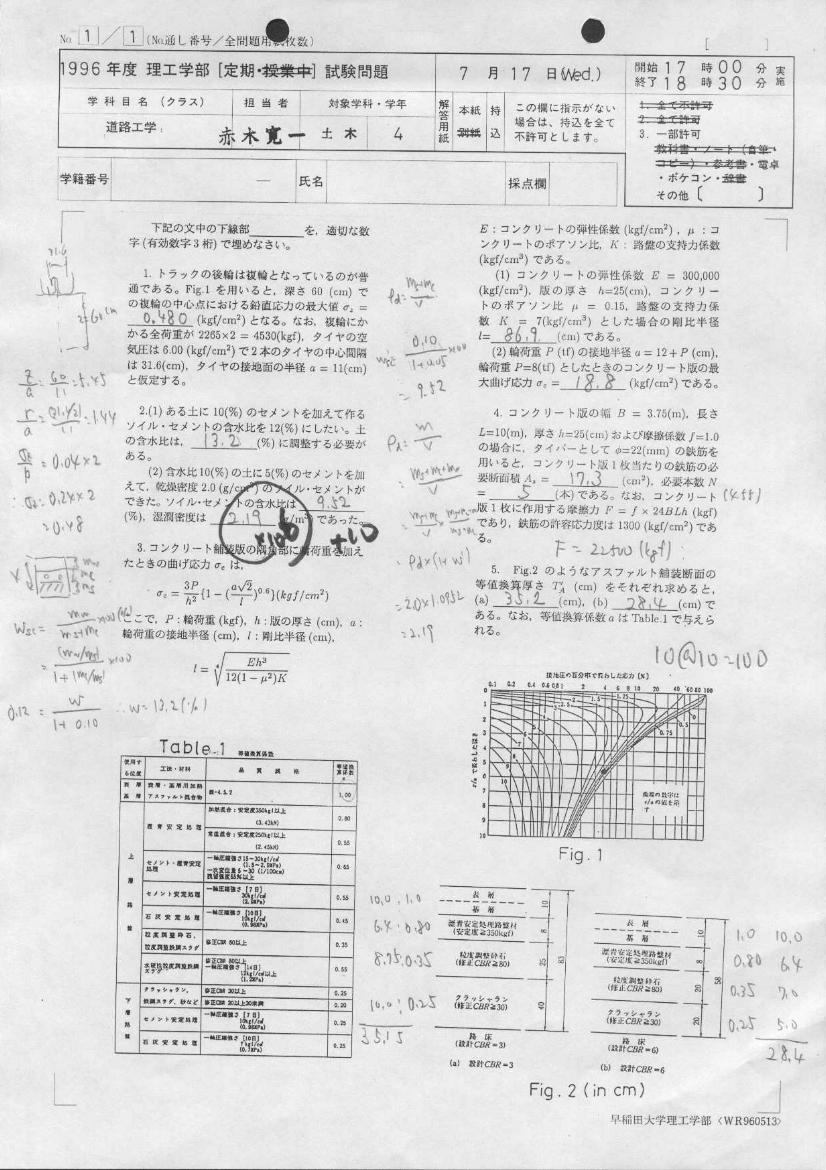 No. 1 / 1 (No.通し番号/全問題用紙枚数) [ ]
1996年度 理工学部 [定期・授業中] 試験問題
7月17日(Wed.)
開始 17時00分
終了 18時30分
実施
学科目名 (クラス)
担当者
対象学科・学年
道路工学
赤木寛一
土木
4
解答用紙
本紙
別紙
持込
この欄に指示がない
場合は、持込を全て
不許可とします。
1. 全て不許可
2. 全て許可
3. 一部許可
教科書・ノート(自筆・
コピー)・参考書・電卓
・ポケコン・辞書
その他 [ ]
学籍番号
氏名
採点欄
下記の文中の下線部 を,適切な数
字(有効数字3桁)で埋めなさい。
1. トラックの後輪は複輪となっているのが普
通である。Fig.1 を用いると,深さ 60 (cm) で
の複輪の中心点における鉛直応力の最大値 σz =
0.480 (kgf/cm²) となる。なお,複輪にか
かる全荷重が 2265×2 = 4530(kgf),タイヤの空
気圧は 6.00 (kgf/cm²) で2本のタイヤの中心間隔
は 31.6(cm),タイヤの接地面の半径 a = 11(cm)
と仮定する。
z/a = 60/11 = 5.45
r/a = (31.6/2)/11 = 1.44
σz/p = 0.04×2
σz = 0.24×2
= 0.48
2.(1) ある土に 10(%) のセメントを加えて作る
ソイル・セメントの含水比を 12(%) にしたい。土
の含水比は, 13.2 (%) に調整する必要が
ある。
(2) 含水比 10(%) の土に 5(%) のセメントを加
えて,乾燥密度 2.0 (g/cm³) のソイル・セメントが
できた。ソイル・セメントの含水比は 9.52
(%),湿潤密度は 2.19 g/m³ であった。
×10⁶
+10
3. コンクリート舗装版の隅角部に輪荷重を加え
たときの曲げ応力 σc は,
σc = 3P/h² {1 − (a√2/l)^0.6} (kgf/cm²)
ここで,P : 輪荷重 (kgf), h : 版の厚さ (cm), a :
輪荷重の接地半径 (cm), l : 剛比半径 (cm),
l = ⁴√(Eh³/12(1 − μ²)K)
0.12 = w/(1+0.10) ∴w=13.2(%)
E : コンクリートの弾性係数 (kgf/cm²), μ : コ
ンクリートのポアソン比, K : 路盤の支持力係数
(kgf/cm³) である。
(1) コンクリートの弾性係数 E = 300,000
(kgf/cm²), 版の厚さ h=25(cm), コンクリー
トのポアソン比 μ = 0.15, 路盤の支持力係
数 K = 7(kgf/cm³) とした場合の剛比半径
l= 86.9 (cm) である。
(2) 輪荷重 P (tf) の接地半径 a = 12 + P (cm),
輪荷重 P=8(tf) としたときのコンクリート版の最
大曲げ応力 σc = 18.8 (kgf/cm²) である。
4. コンクリート版の幅 B = 3.75(m), 長さ
L=10(m), 厚さ h=25(cm) および摩擦係数 f=1.0
の場合に,タイバーとして φ=22(mm) の鉄筋を
用いると,コンクリート版1枚当たりの鉄筋の必
要断面積 As = 17.3 (cm²), 必要本数 N
= 5 (本) である。なお,コンクリート (4.55)
版1枚に作用する摩擦力 F = f × 24BLh (kgf)
であり,鉄筋の許容応力度は 1300 (kgf/cm²) であ
る。
F = 22500 (kgf)
5. Fig.2 のようなアスファルト舗装断面の
等値換算厚さ T'A (cm) をそれぞれ求めると,
(a) 35.2 (cm), (b) 28.4 (cm) で
ある。なお,等値換算係数 a は Table.1 で与えら
れる。
10@10=100
ρd×(1+w)
=2.0×1.0952
=2.19
= 9.52
接地圧の百分率で表わした応力 (%)
0.1 0.2 0.4 0.6 0.8 1 2 4 6 8 10 20 40 60 80 100
z/a で表わした深さ
曲線の数字は
r/a の値を示
す
Fig. 1
Table.1 等値換算係数
使用する位置
工法・材料
品質規格
等値換算係数 a
表層 基層
表層・基層用加熱
アスファルト混合物
表-4.5.2
1.00
上層路盤
瀝青安定処理
加熱混合:安定度350kgf以上
(3.43kN)
0.80
常温混合:安定度250kgf以上
(2.45kN)
0.55
セメント・瀝青安定
処理
一軸圧縮強さ15-30kgf/cm²
(1.5-2.9MPa)
一次変位量5-30 (1/100cm)
残留強度65%以上
0.65
セメント安定
処理
一軸圧縮強さ [7日]
30kgf/cm²
(2.9MPa)
0.55
石灰安定処理
一軸圧縮強さ [10日]
10kgf/cm²
(0.98MPa)
0.45
粒度調整砕石,
粒度調整鉄鋼スラグ
修正CBR 80以上
0.35
水硬性粒度調整鉄鋼
スラグ
修正CBR 80以上
一軸圧縮強さ [14日]
12kgf/cm²以上
(1.2MPa)
0.55
下層路盤
クラッシャラン,
鉄鋼スラグ,砂など
修正CBR 30以上
0.25
修正CBR 20以上30未満
0.20
セメント安定処理
一軸圧縮強さ [7日]
10kgf/cm²
(0.98MPa)
0.25
石灰安定処理
一軸圧縮強さ [10日]
7kgf/cm²
(0.7MPa)
0.25
10.0 : 1.0
6.4 : 0.80
8.75 : 0.35
10.0 : 0.25
35.15
表層
基層
10
瀝青安定処理路盤材
(安定度≧350kgf)
8
粒度調整砕石
(修正CBR≧80)
25
クラッシャラン
(修正CBR≧30)
40
83
路床
(設計CBR=3)
(a) 設計CBR=3
表層
基層
10
瀝青安定処理路盤材
(安定度≧350kgf)
8
粒度調整砕石
(修正CBR≧80)
20
クラッシャラン
(修正CBR≧30)
20
58
路床
(設計CBR=6)
(b) 設計CBR=6
1.0 10.0
0.80 6.4
0.35 7.0
0.25 5.0
28.4
Fig. 2 (in cm)
早稲田大学理工学部〈WR960513〉